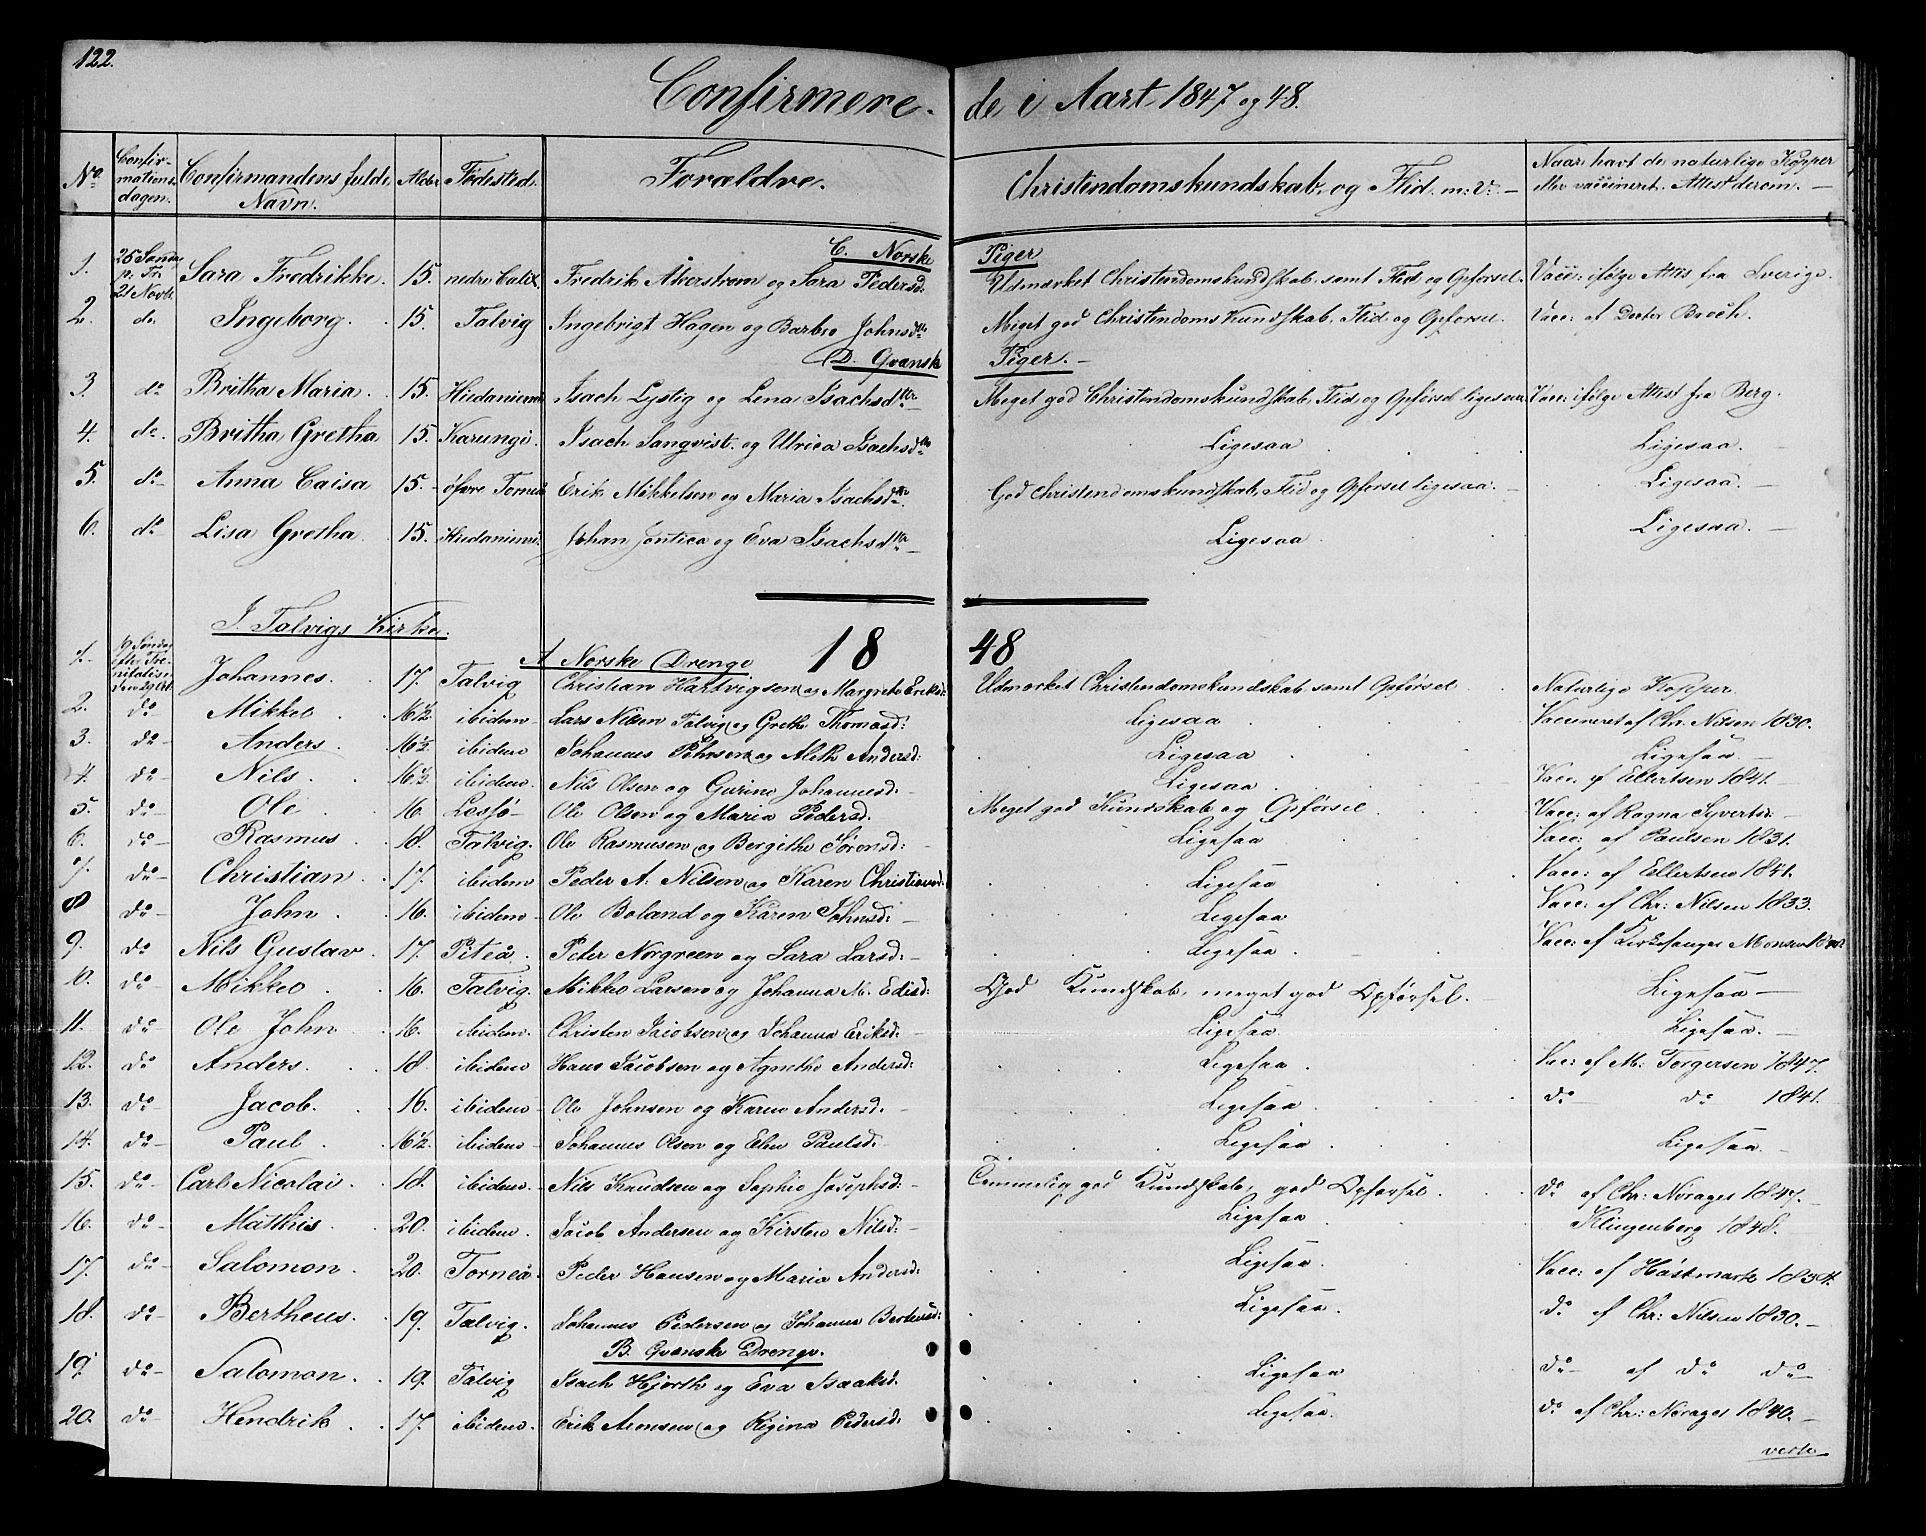 122.
Confirmere- de i Aaret 1847 og 48.
No. Confir-mations-dagen. Confirmandens fulde Navn. Alder Fødested. Forældre. Christendomskundskab, og Flid. m: v: - Naar havt de naturlige Kopper eller vaccineret. Attest derom. -
C. Norske Piger
1. 26 Sønd. p. Tr. 21 Novbr. Sara Fredrikke. 15. nedre Calix. Fredrik Åkerstrøm og Sara Pedersd. Udmærket Christendomskundskab, samt Flid og Opførsel. Vacc: ifølge Attest fra Sverige.
2. do Ingeborg. 15. Talvig Ingebrigt Hagen og Barbro Johnsdtr Meget god Christendoms Kundskab, Flid og Opførsel. Vacc: af Docter Broch.
D. Qvensk Piger. -
3. do Britha Maria. 15. Hiedaniemi Isach Lystig og Lena Isachsdtr Meget god Christendomskundskab, Flid og Opførsel ligesaa Vacc: ifølge Attest fra Berg.
4. do. Britha Gretha 15. Karungi. Isach Sanqvist. og Ulrica Isachsdtr Ligesaa Ligesaa.
5. do Anna Caisa 15. øfvre Torneå Erik Mikkelsen og Maria Isachsdtr. God christendomskundskab, Flid og Opførsel ligesaa. Ligesaa.
6. do Lisa Gretha. 15. Hiedaniemi. Johan Jontica og Eva Isachsdtr Ligesaa Ligesaa.
I. Talvigs Kirke. 18 48
A Norske Drenge
1. 19 Søndag efter Trinitatis den 29 Oct. Johannes. 17. Talvig Christian Hartvigsen og Margrete Eriksd: Udmærket Christendomskundskab samt Opførsel Naturlige Kopper.
2. do Mikkel 16 1/2. ibidem Lars Nilsen Talvig og Grethe Thomasd: Ligesaa Vaccineret af Chr. Nilsen 1830.
3. do Anders. 16 1/2. ibidem Johannes Johnsen og Aleth Andersd: Ligesaa Ligesaa
4. do Nils. 16 1/2. ibidem. Nils Olsen og Gurine Johannesd: Ligesaa Vacc: af Ellertsen 1841.
5. do Ole 16. Lessø Ole Olsen og Maria Pedersd. Meget god Kundskab og Opførsel Vacc: af Ragna Syvertsd:
6. do Rasmus 18. Talvig. Ole Rasmusen og Bergithe Sørensd: Ligesaa Vacc: af Paulsen 1831.
7. do Christian. 17. ibidem Peder A: Nilsen og Karen Christiansd: Ligesaa Vacc: af Ellertsen 1841.
8 do John. 16. ibidem Ole Boland og Karen Johnsd: Ligesaa Vacc: af Chr: Nilsen 1833.
9. do Nils Gustav. 17. Piteå. Peter Norgreen og Sara Larsd: Ligesaa Vacc: af Kirkesanger Monsen
10. do Mikkel 16. Talvig. Mikkel Larsen og Johanna M. Edisd: God Kundskab, meget god Opførsel. Ligesaa
11. do Ole John 16. ibidem. Christen Jacobsen og Johanna Eriksd: Ligesaa Ligesaa.
12. do Anders. 18 ibidem Hans Jacobsen og Agnethe Andersd: Ligesaa. Vac: af M: Torgersen 1847.
13. do Jacob. 16. ibidem Ole Johnsen og Karen Andersd. Ligesaa do do 1841.
14. do Paul 16 1/2. ibidem Johannes Olsen og Elen Paulsd: Ligesaa Ligesaa
15. do Carl Nicolai. 18. ibidem. Nils Knudsen og Sophie Josephsd: Temmelig god Kundskab, god Opførsel. do af Chr: Norager 1847.
16. do Matthis 20. ibidem. Jacob Andersen og Kirsten Nilsd: Ligesaa Klingenberg 1848.
17. do Salomon. 20. Torneå. Peder Hansen og Maria Andersd: Ligesaa. Vacc: af Håstmark 1834.
18. do Bertheus. 19. Talvig. Johannes Pedersen og Johanna Berteusd: Ligesaa. do af Chr: Nilsen 1830.
B. Qvenske Drenge.
19. do Salomon. 19. Talvig Isach Hjorth og Eva Isaaksd. Ligesaa do af do do
20. do Hendrik 17. ibidem. Erik Aronsen og Regina Pedersd: Ligesaa. do af Chr: Norager 1840.
verte